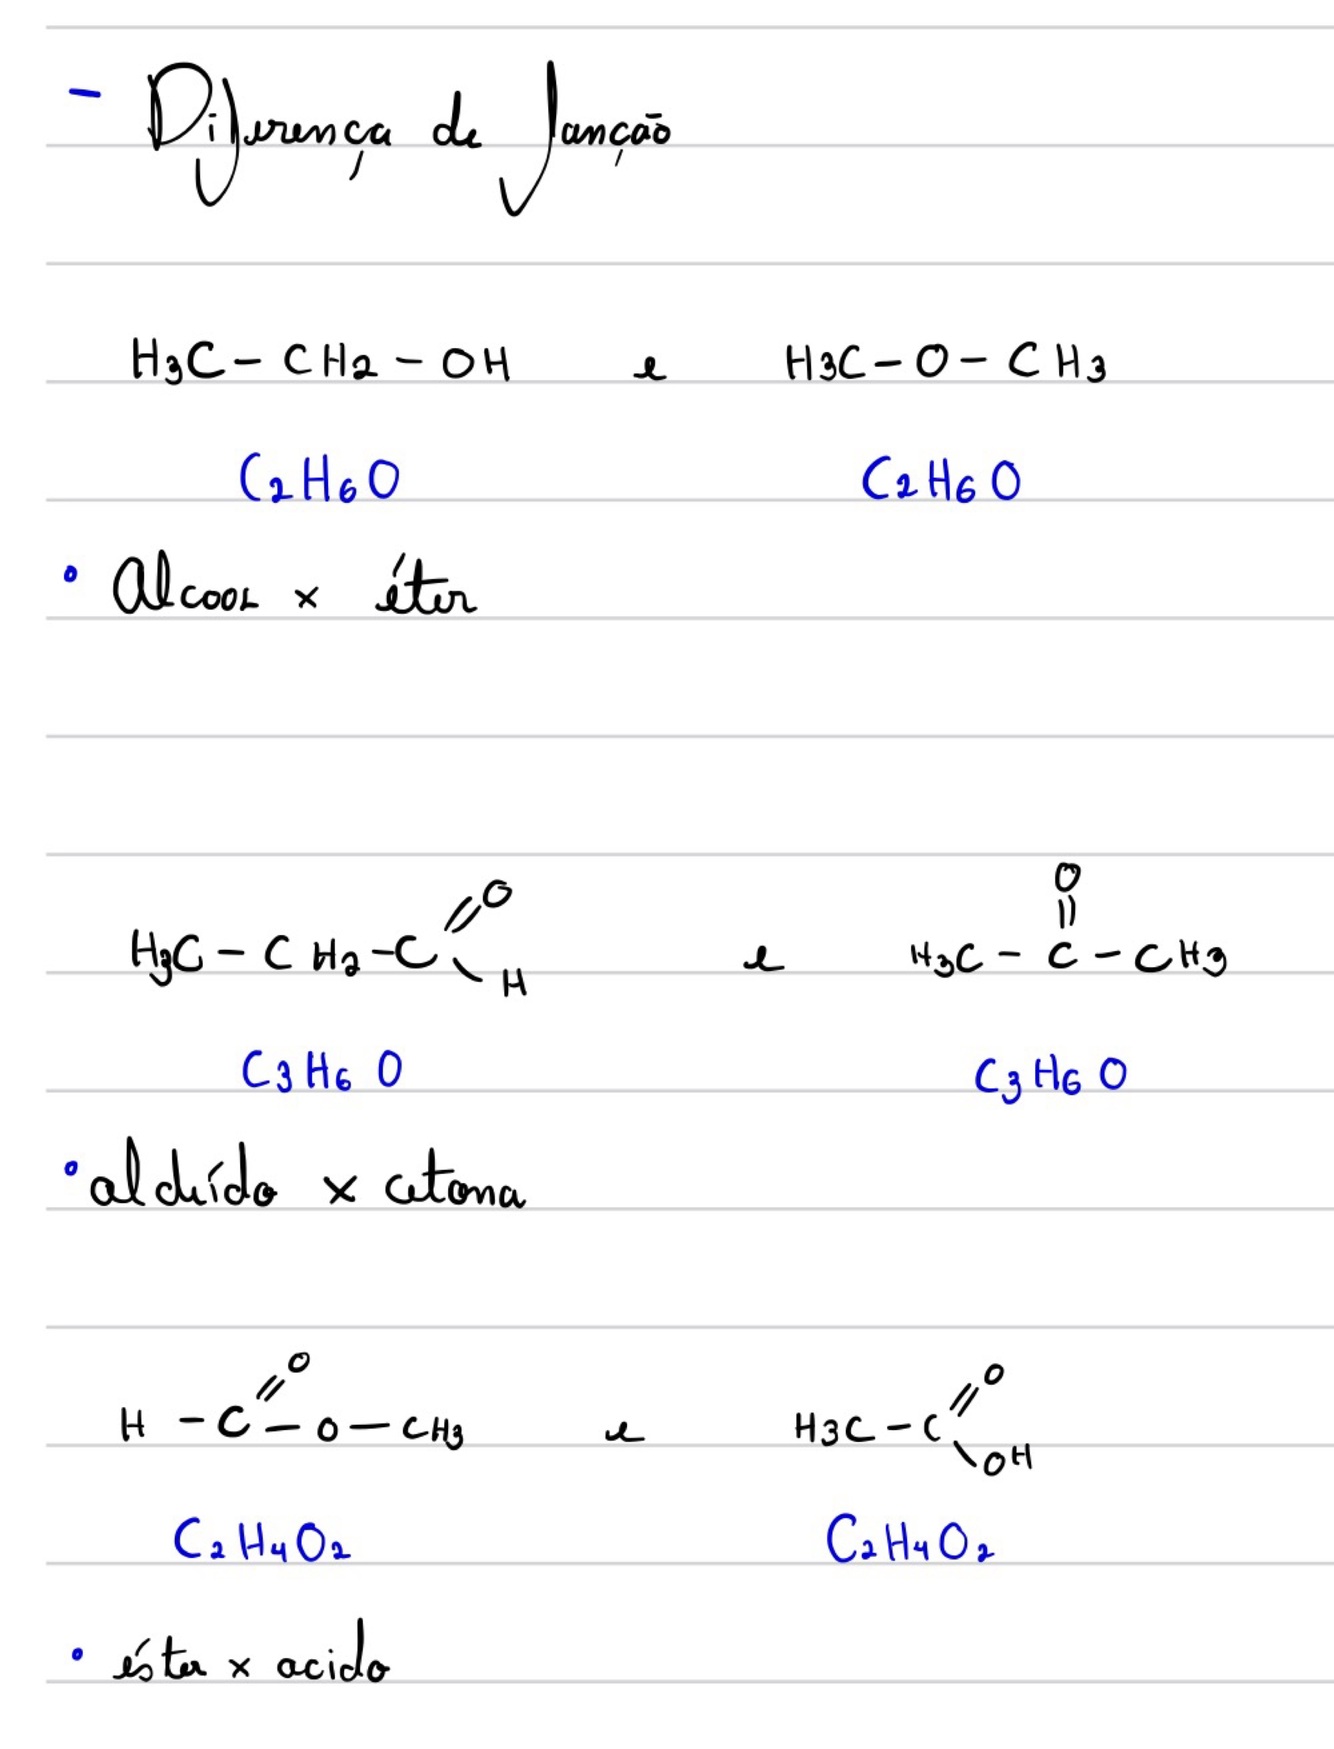 - Diferença de função
H3C - CH2 - OH e H3C - O - CH3
C2H6O C2H6O
• Alcool x éter
O
O ||
H3C - CH2 - C // \ H e H3C - C - CH3
C3H6O C3H6O
• aldeído x cetona
O O
H - C // - O - CH3 e H3C - C // \ OH
C2H4O2 C2H4O2
• éster x acido